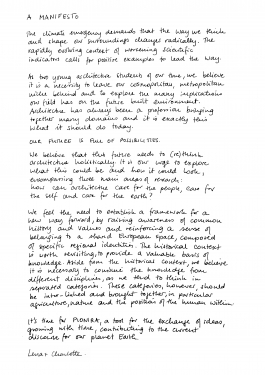 A MANIFESTO
The climate emergency demands that the way we think
and shape our surroundings changes radically. The
rapidly evolving context of worsening scientific
indicators calls for positive examples to lead the way.
As two young architecture students of our time, we believe
it is a necessity to leave our cosmopolitan, metropolitan
views behind and to explore the many implications
our field has on the future built environment.
Architecture has always been a profession bringing
together many domains and it is exactly this
what it should do today.
OUR FUTURE IS FULL OF POSSIBILITIES.
We believe that this future needs to (re)think
architecture holistically. It is our urge to explore
what this could be and how it could look,
encompassing three main areas of research:
how can architecture care for the people, care for
the self and care for the earth?
We feel the need to establish a framework for a
new way forward, by raising awareness of common
history and values and reinforcing a sense of
belonging to a shared European space, composed
of specific regional identities. The historical context
is worth revisiting, to provide a valuable basis of
knowledge. Aside from the historical context, we believe
it is necessary to combine the knowledge from
different disciplines, as we tend to think in
separated categories. These categories, however, should
be inter-linked and brought together, in particular
agriculture, nature and the position of the human within.
It's time for a tool for the exchange of ideas,
growing with time, contributing to the current
discourse for our planet Earth.
Lena + Charlotte